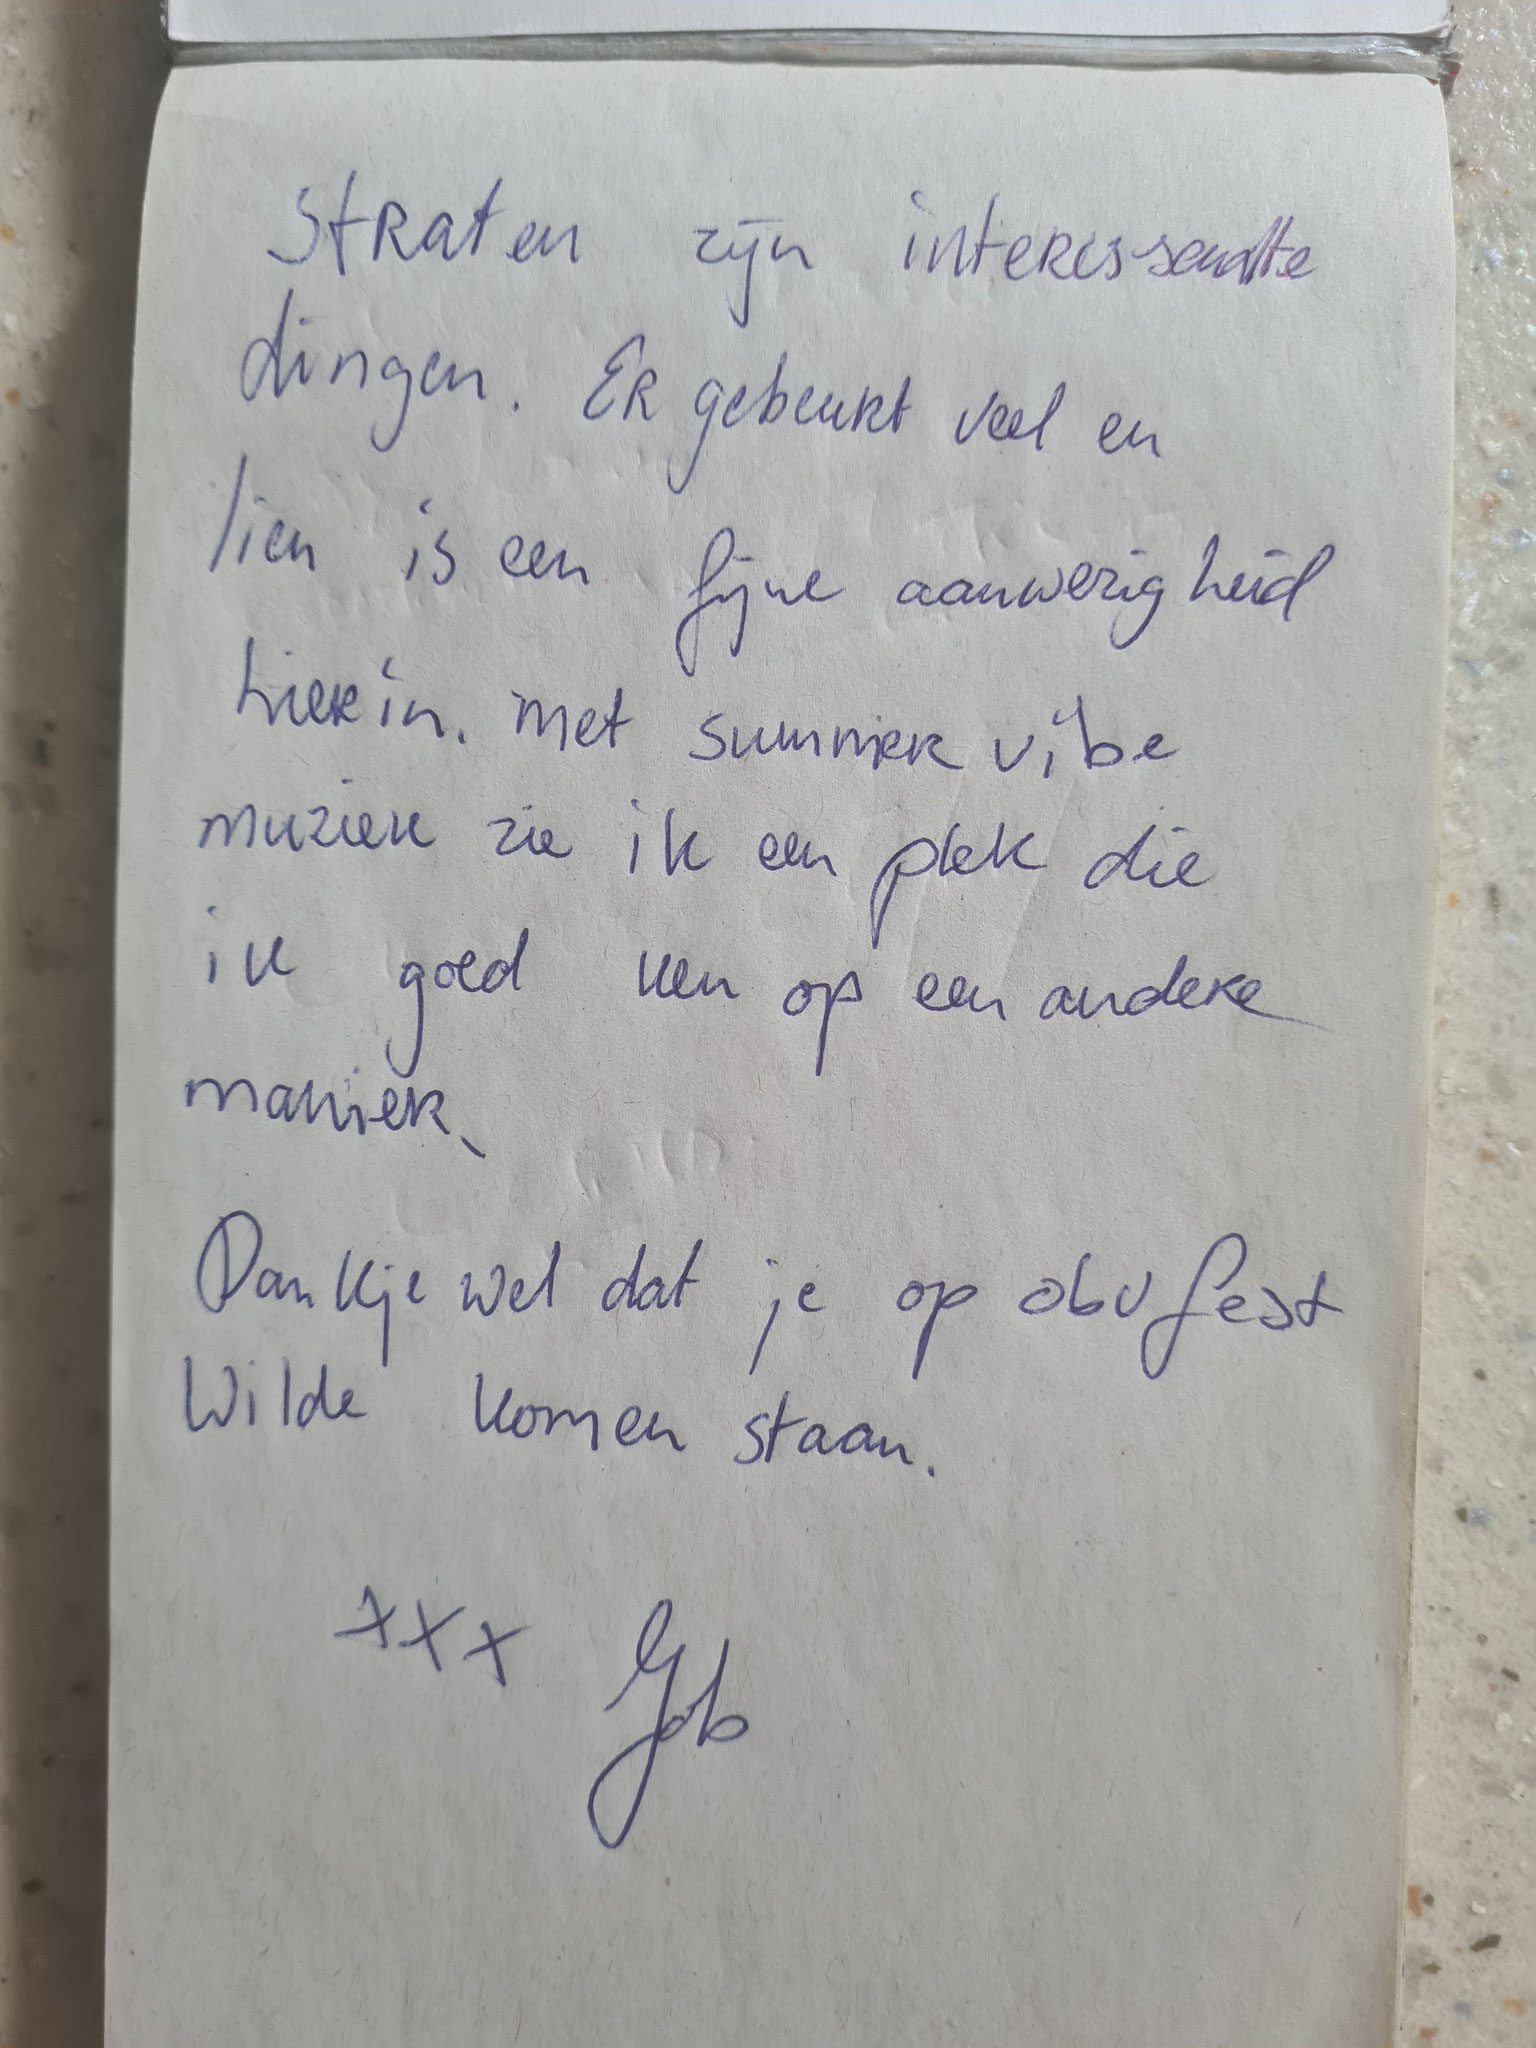 Straten zijn interessandte
dingen. Er gebeurt veel en
lien is een fijne aanwezigheid
hierin. met summer vibe
muziek zie ik een plek die
ik goed ken op een andere
manier.
Dankje wel dat je op obvfest
Wilde komen staan.
xxx Job